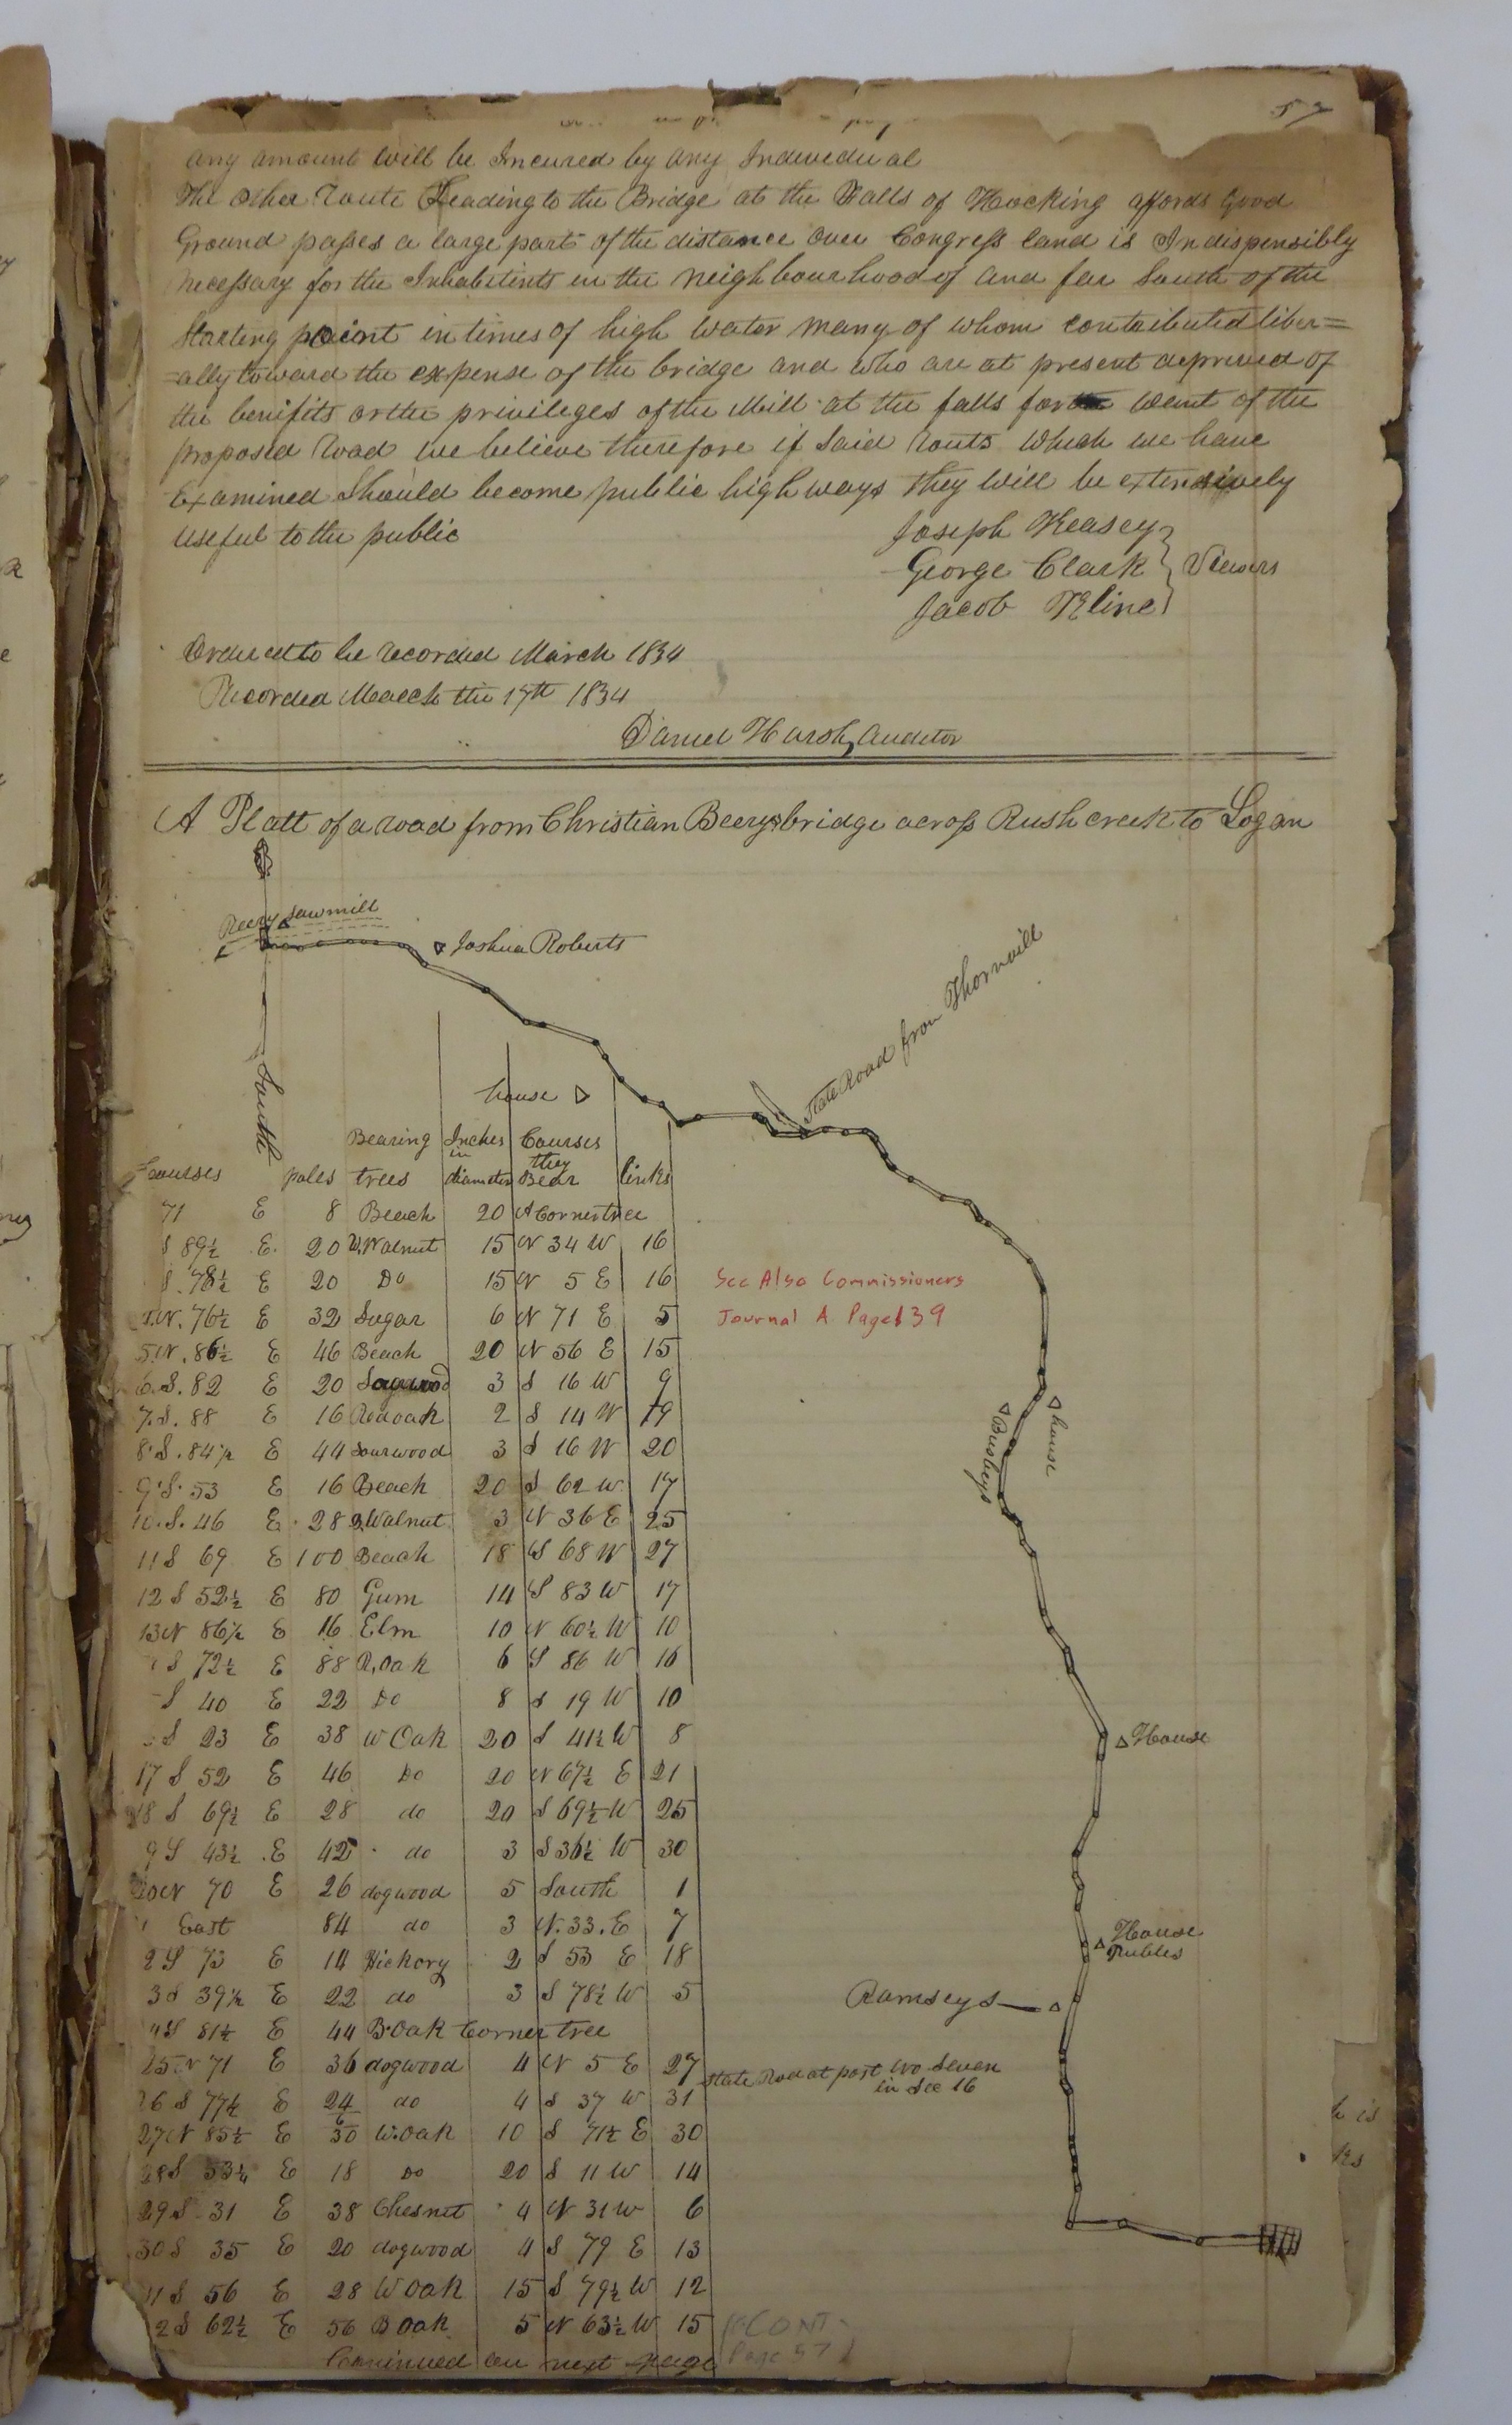 57
any amount will be Incured by any Indevedual
The other Route Leading to the Bridge at the Falls of Hocking affords Good
Ground passes a large part of the distance over Congress land is Indispensibly
necessary for the Inhabitents in the neighbourhood of and far South of the
Starting point in times of high water many of whom contributed liber=
=ally toward the expense of the bridge and who are at present deprived of
the benifits or the privileges of the Mill at the falls for want of the
proposed Road we believe therefore if Said routs which we have
Examined Should become public high ways they will be extensively
useful to the public
Joseph Keasey
George Clark } Viewers
Jacob Kline
Ordered to be recorded March 1834
Recorded March the 17th 1834
Daniel Harsh, Auditor
A Platt of a road from Christian Beerys bridge across Rush creek to Logan
Beery Sawmill
Joshua Roberts
State Road from Thornvill
South
house
Bearing Inches Courses
in they
Courses poles trees diameter Bear links
71 E 8 Beech 20 A Corner tree
S 89½ E. 20 W. Walnut 15 N 34 W 16
S. 78½ E 20 Do 15 N 5 E 16
N. 76½ E 32 Sugar 6 N 71 E 5
5 N. 86½ E 46 Beach 20 N 56 E 15
6. S. 82 E 20 3 S 16 W 9
7. S. 88 E 16 Red oak 2 S 14 W 19
8. S. 84½ E 44 Sourwood 3 S 16 W 20
9. S. 53 E 16 Beach 20 S 62 W 17
10. S. 46 E 28 B. Walnut 3 N 36 E 25
11 S 69 E 100 Beach 18 S 68 W 27
12 S 52½ E 80 Gum 14 S 83 W 17
13 N 86½ E 16 Elm 10 N 60½ W 10
S 72½ E 88 R. Oak 6 S 86 W 16
S 40 E 22 Do 8 S 19 W 10
S 23 E 38 W Oak 20 S 41½ W 8
17 S 52 E 46 Do 20 N 67½ E 21
18 S 69½ E 28 do 20 S 69½ W 25
9 S 43½ E 42 do 3 S 36½ W 30
20 N 70 E 26 dogwood 5 South 1
1 East 84 do 3 N. 33. E 7
2 S 73 E 14 Hickory 2 S 53 E 18
3 S 39½ E 22 do 3 S 78½ W 5
4 S 81½ E 44 B. Oak Corner tree
25 N 71 E 36 dogwood 4 N 5 E 27
26 S 77½ E 24 do 4 S 37 W 31
6
27 N 85½ E 30 W. Oak 10 S 71½ E 30
28 S 53¼ E 18 Do 20 S 11 W 14
29 S 31 E 38 Chesnut 4 N 31 W 6
30 S 35 E 20 dogwood 4 S 79 E 13
31 S 56 E 28 W Oak 15 S 79½ W 12
2 S 62½ E 56 B Oak 5 N 63½ W 15
Continued on next page
(CONT-
Page 57)
See Also Commissioners
Journal A Page 139
Busbeys
house
House
House
Nubles
Ramseys
State Road at post No Seven
in Sec 16